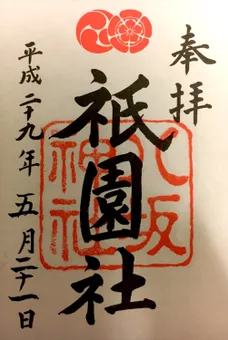 奉拝
八坂神社
祇園社
平成二十九年五月二十一日